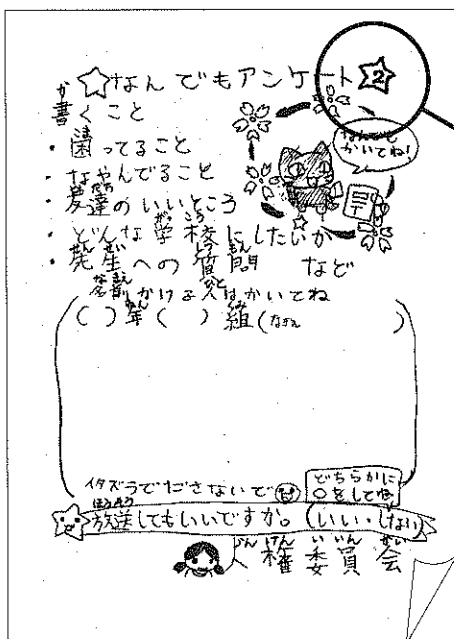 ☆なんでもアンケート☆2
書くこと
・困ってること
・なやんでること
・友達のいいところ
・どんな学校にしたいか
・先生への質問 など
なんでも
かいてね!
名前かける人はかいてね
( )年( )組(なまえ )
イタズラでださないで
どちらかに
○をしてね
放送してもいいですか。(いい・しない)
人権委員会